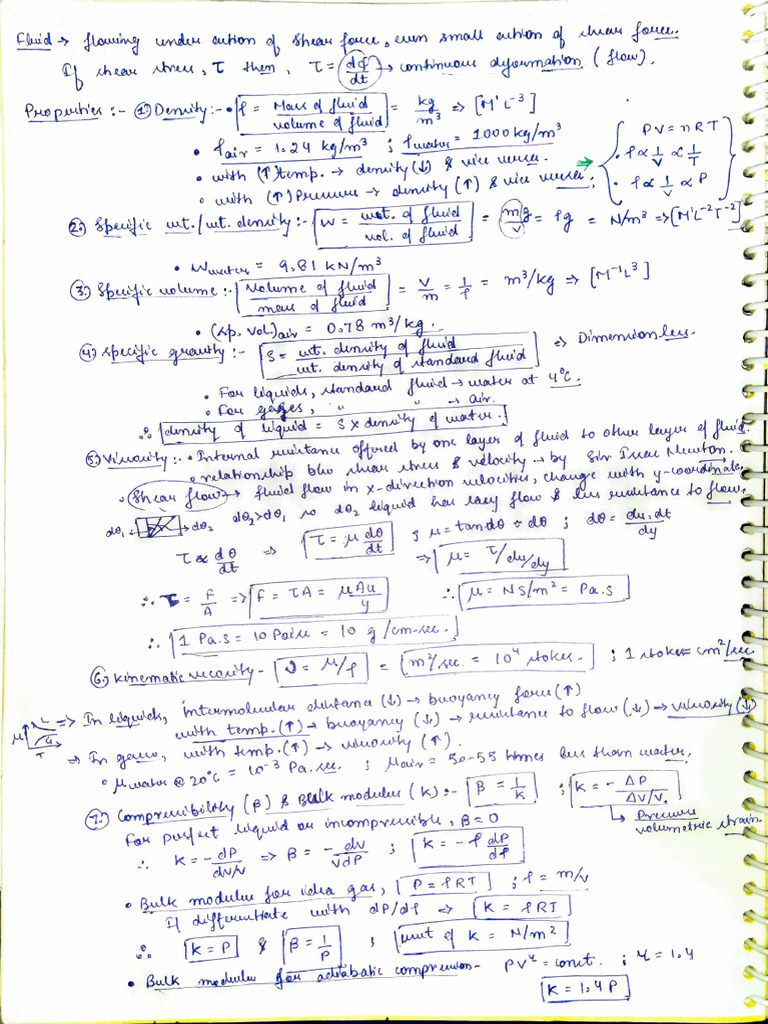 Fluid → flowing under action of shear force, even small action of shear force.
If shear stress, τ then, τ = dφ/dt → continuous deformation (flow).
Properties :- ① Density :- • ρ = Mass of fluid / volume of fluid = kg/m³ => [M¹L⁻³]
• ρair = 1.24 kg/m³ ; ρwater = 1000 kg/m³
• with (↑) temp. → density (↓) & vice versa.
• with (↑) Pressure → density (↑) & vice versa ;
→ { PV = nRT
• ρ ∝ 1/V ∝ 1/T
• ρ ∝ 1/V ∝ P }
② Specific wt./wt. density :- W = wt. of fluid / vol. of fluid = m/v g = ρg = N/m³ => [M¹L⁻²T⁻²]
• Wwater = 9.81 kN/m³
③ Specific volume :- Volume of fluid / mass of fluid = V/m = 1/ρ = m³/kg => [M⁻¹L³]
• (sp. vol.)air = 0.78 m³/kg.
④ Specific gravity :- S = wt. density of fluid / wt. density of standard fluid => Dimensionless.
• For liquids, standard fluid → water at 4°C.
• For gases, " " → air.
∴ density of liquid = S × density of water.
⑤ Viscosity :- • Internal resistance offered by one layer of fluid to other layer of fluid.
• relationship b/w shear stress & velocity → by Sir Issac Newton.
• Shear flow → fluid flow in x-direction velocities, change with y-coordinate.
dθ₁ dθ₂ dθ₂ > dθ₁ so dθ₂ liquid has easy flow & less resistance to flow.
τ ∝ dθ/dt => τ = μ dθ/dt ; μ = tan dθ ≈ dθ ; dθ = du.dt/dy
=> μ = τ/du/dy
∴ τ = F/A => F = τA = μAu/y ∴ μ = NS/m² = Pa.S
∴ 1 Pa.s = 10 Poise = 10 g/cm-sec.
⑥ Kinematic viscosity - ν = μ/ρ = m²/sec. = 10⁴ stokes. ; 1 stokes = cm²/sec.
μ L G T => In liquids, intermolecular distance (↓) → buoyancy force (↑)
with temp. (↑) → buoyancy (↓) → resistance to flow (↓) → viscosity (↓)
=> In gases, with temp. (↑) → viscosity (↑).
• μwater @ 20°C = 10⁻³ Pa.sec. ; μair = 50-55 times less than water.
⑦ Compressibility (β) & Bulk modulus (K) :- β = 1/K ; K = - ΔP / ΔV/V.
↳ Pressure
volumetric strain.
For perfect liquid or incompressible, β = 0
∴ K = - dP / dv/v => β = - dv / vdP ; K = - ρ dP/dρ
• Bulk modulus for idea gas, P = ρRT ; ρ = m/v
If differentiate with dP/dρ => K = ρRT
∴ K = P & β = 1/P ; unit of K = N/m²
• Bulk modulus for adiabatic compression - PVᵞ = const. ; γ = 1.4
K = 1.4 P